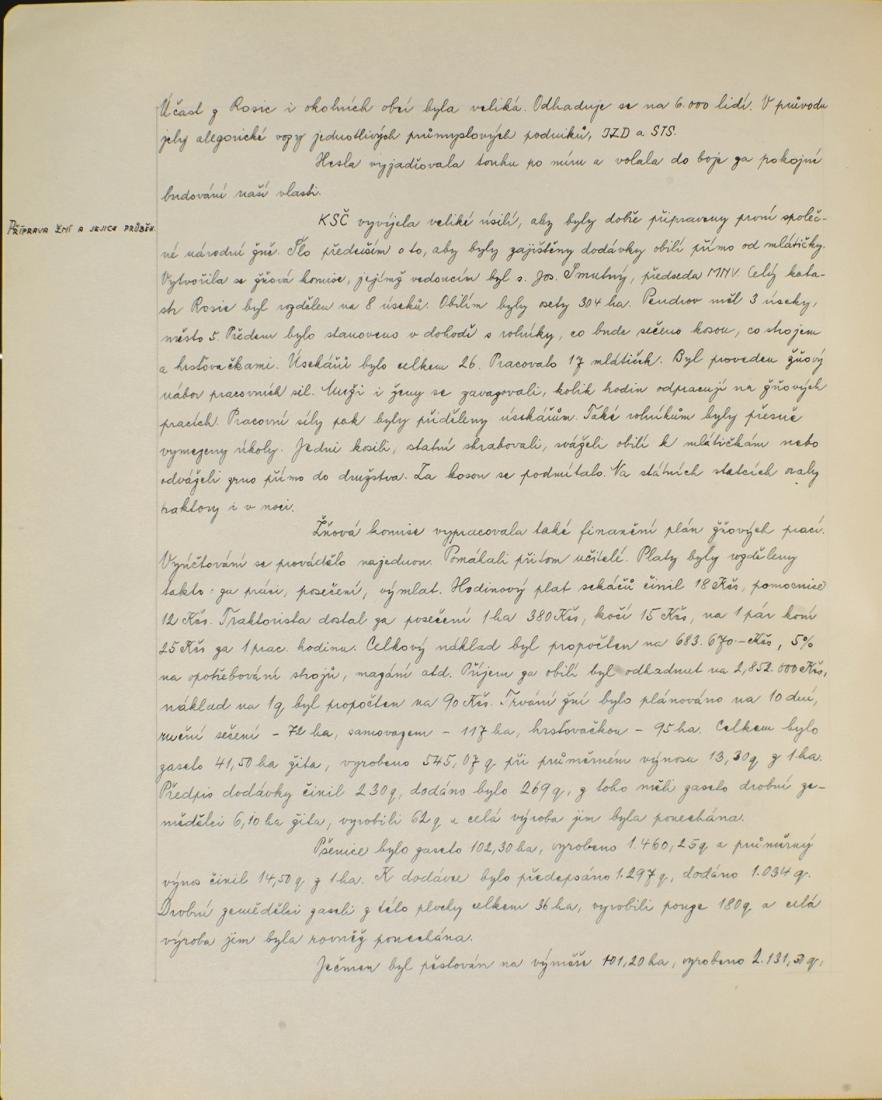 Účast z Rosic i okolních obcí byla veliká. Odhaduje se na 6.000 lidí. V průvodu
jely alegorické vozy jednotlivých průmyslových podniků, JZD a STS.
Hesla vyjadřovala touhu po míru a volala do boje za pokojné
budování naší vlasti.
PŘÍPRAVA ŽNÍ A JEJICH PRŮBĚH.
KSČ vyvíjela veliké úsilí, aby byly dobře připraveny první společ-
né národní žně. Šlo především o to, aby byly zajištěny dodávky obilí přímo od mlátičky.
Vytvořila se žňová komise, jejímž vedoucím byl s. Jos. Smutný, předseda MNV. Celý kata-
str Rosic byl rozdělen na 8 úseků. Obilím byly osety 304 ha. Pendrov měl 3 úseky,
město 5. Předem bylo stanoveno v dohodě s rolníky, co bude sečeno kosou, co strojem
a hrsťovačkami. Úsekářů bylo celkem 26. Pracovalo 17 mlátiček. Byl proveden žňový
nábor pracovních sil. Muži i ženy se zavazovali, kolik hodin odpracují na žňových
pracích. Pracovní síly pak byly přiděleny úsekářům. Také rolníkům byly přesně
vymezeny úkoly. Jedni kosili, ostatní shrabovali, sváželi obilí k mlátičkám nebo
odváželi zrno přímo do družstva. Za kosou se podmítalo. Na státních statcích oraly
traktory i v noci.
Žňová komise vypracovala také finanční plán žňových prací.
Vyúčtování se provádělo najednou. Pomáhali přitom učitelé. Platy byly rozděleny
takto: za práci, posečení, výmlat. Hodinový plat sekáčů činil 18 Kčs, pomocnice
12 Kčs. Traktorista dostal za posečení 1 ha 380 Kčs, koší 15 Kčs, na 1 pár koní
25 Kčs za 1 prac. hodinu. Celkový náklad byl propočten na 683.670.- Kčs, 5%
na opotřebování strojů, mazání atd. Příjem za obilí byl odhadnut na 2,852.000 Kčs,
náklad na 1q byl propočten na 90 Kčs. Trvání žní bylo plánováno na 10 dní,
ruční sečení - 72 ha, samovazem - 117 ha, hrsťovačkou - 95 ha. Celkem bylo
zaseto 41,50 ha žita, vyrobeno 545,07 q při průměrném výnosu 13,30 q z 1 ha.
Předpis dodávky činil 230 q, dodáno bylo 269 q, z toho měli zaseto drobní ze-
mědělci 6,10 ha žita, vyrobili 62 q a celá výroba jim byla ponechána.
Pšenice bylo zaseto 102,30 ha, vyrobeno 1.460,25 q a průměrný
výnos činil 14,50 q z 1 ha. K dodávce bylo předepsáno 1.297 q, dodáno 1.034 q.
Drobní zemědělci zaseli z této plochy celkem 36 ha, vyrobili pouze 180 q a celá
výroba jim byla rovněž ponechána.
Ječmen byl pěstován na výměře 101,20 ha, vyrobeno 2.131,50 q,